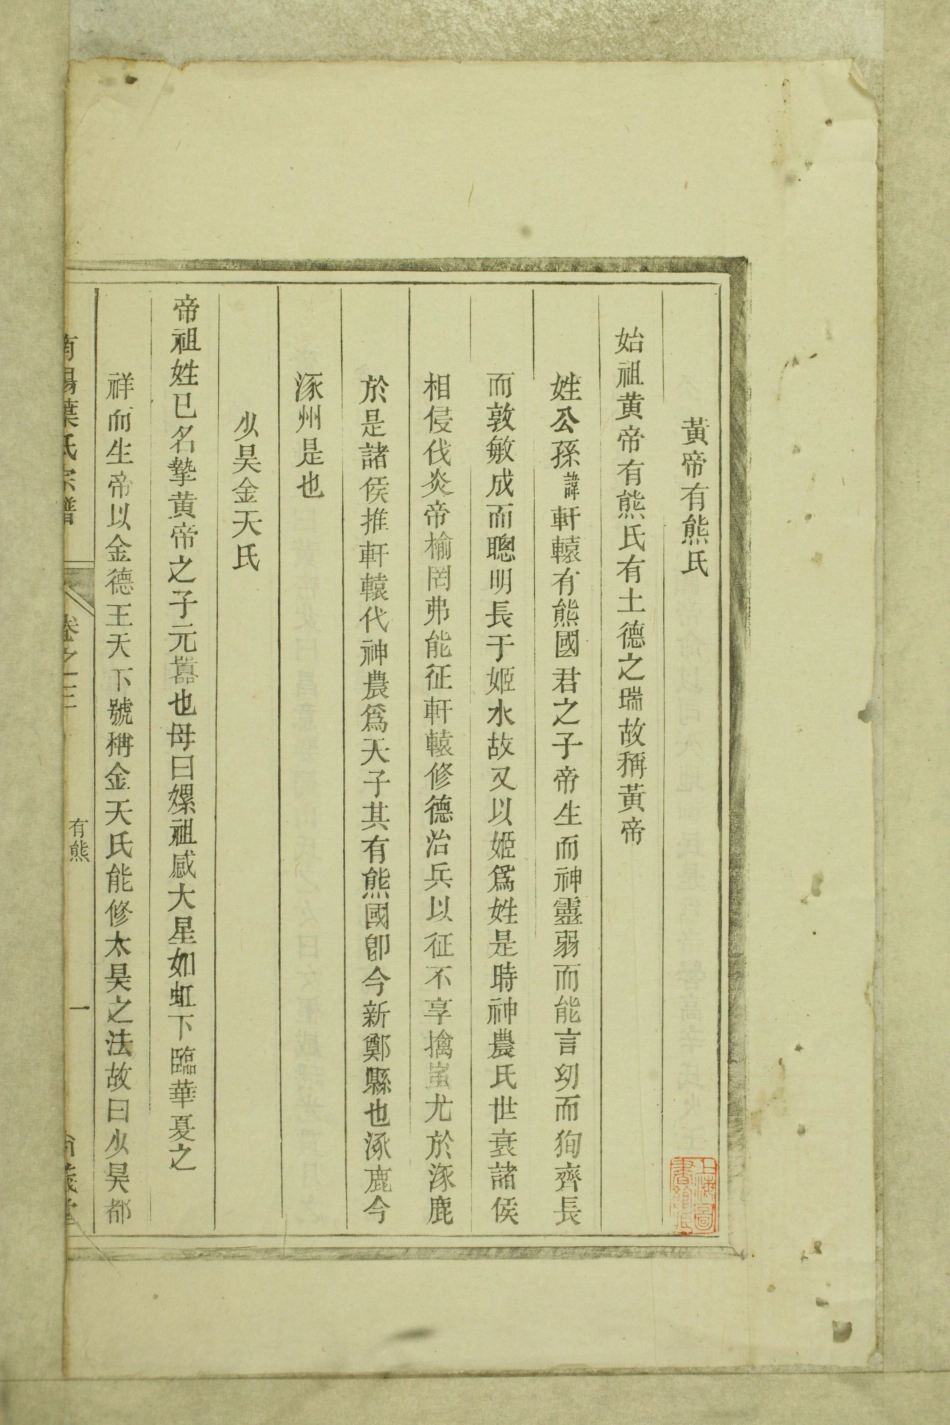 黃帝有熊氏
始祖黄帝有熊氏有土德之瑞故稱黃帝
姓公孫諱軒轅有熊國君之子帝生而神靈弱而能言幼而狥齊長
而敦敏成而聰明長于姬水故又以姬爲姓是時神農氏世衰諸侯
相侵伐炎帝榆罔弗能征軒轅修德治兵以征不享擒蚩尤於涿鹿
於是諸侯推軒轅代神農爲天子其有熊國卽今新鄭縣也涿鹿今
涿州是也
少昊金天氏
帝祖姓已名摯黄帝之子元囂也母曰嫘祖感大星如虹下臨華夏之
祥而生帝以金德王天下號稱金天氏能修太昊之法故曰少昊都
南陽葉氏宗譜
卷之三
有熊
一
上海圖書館藏